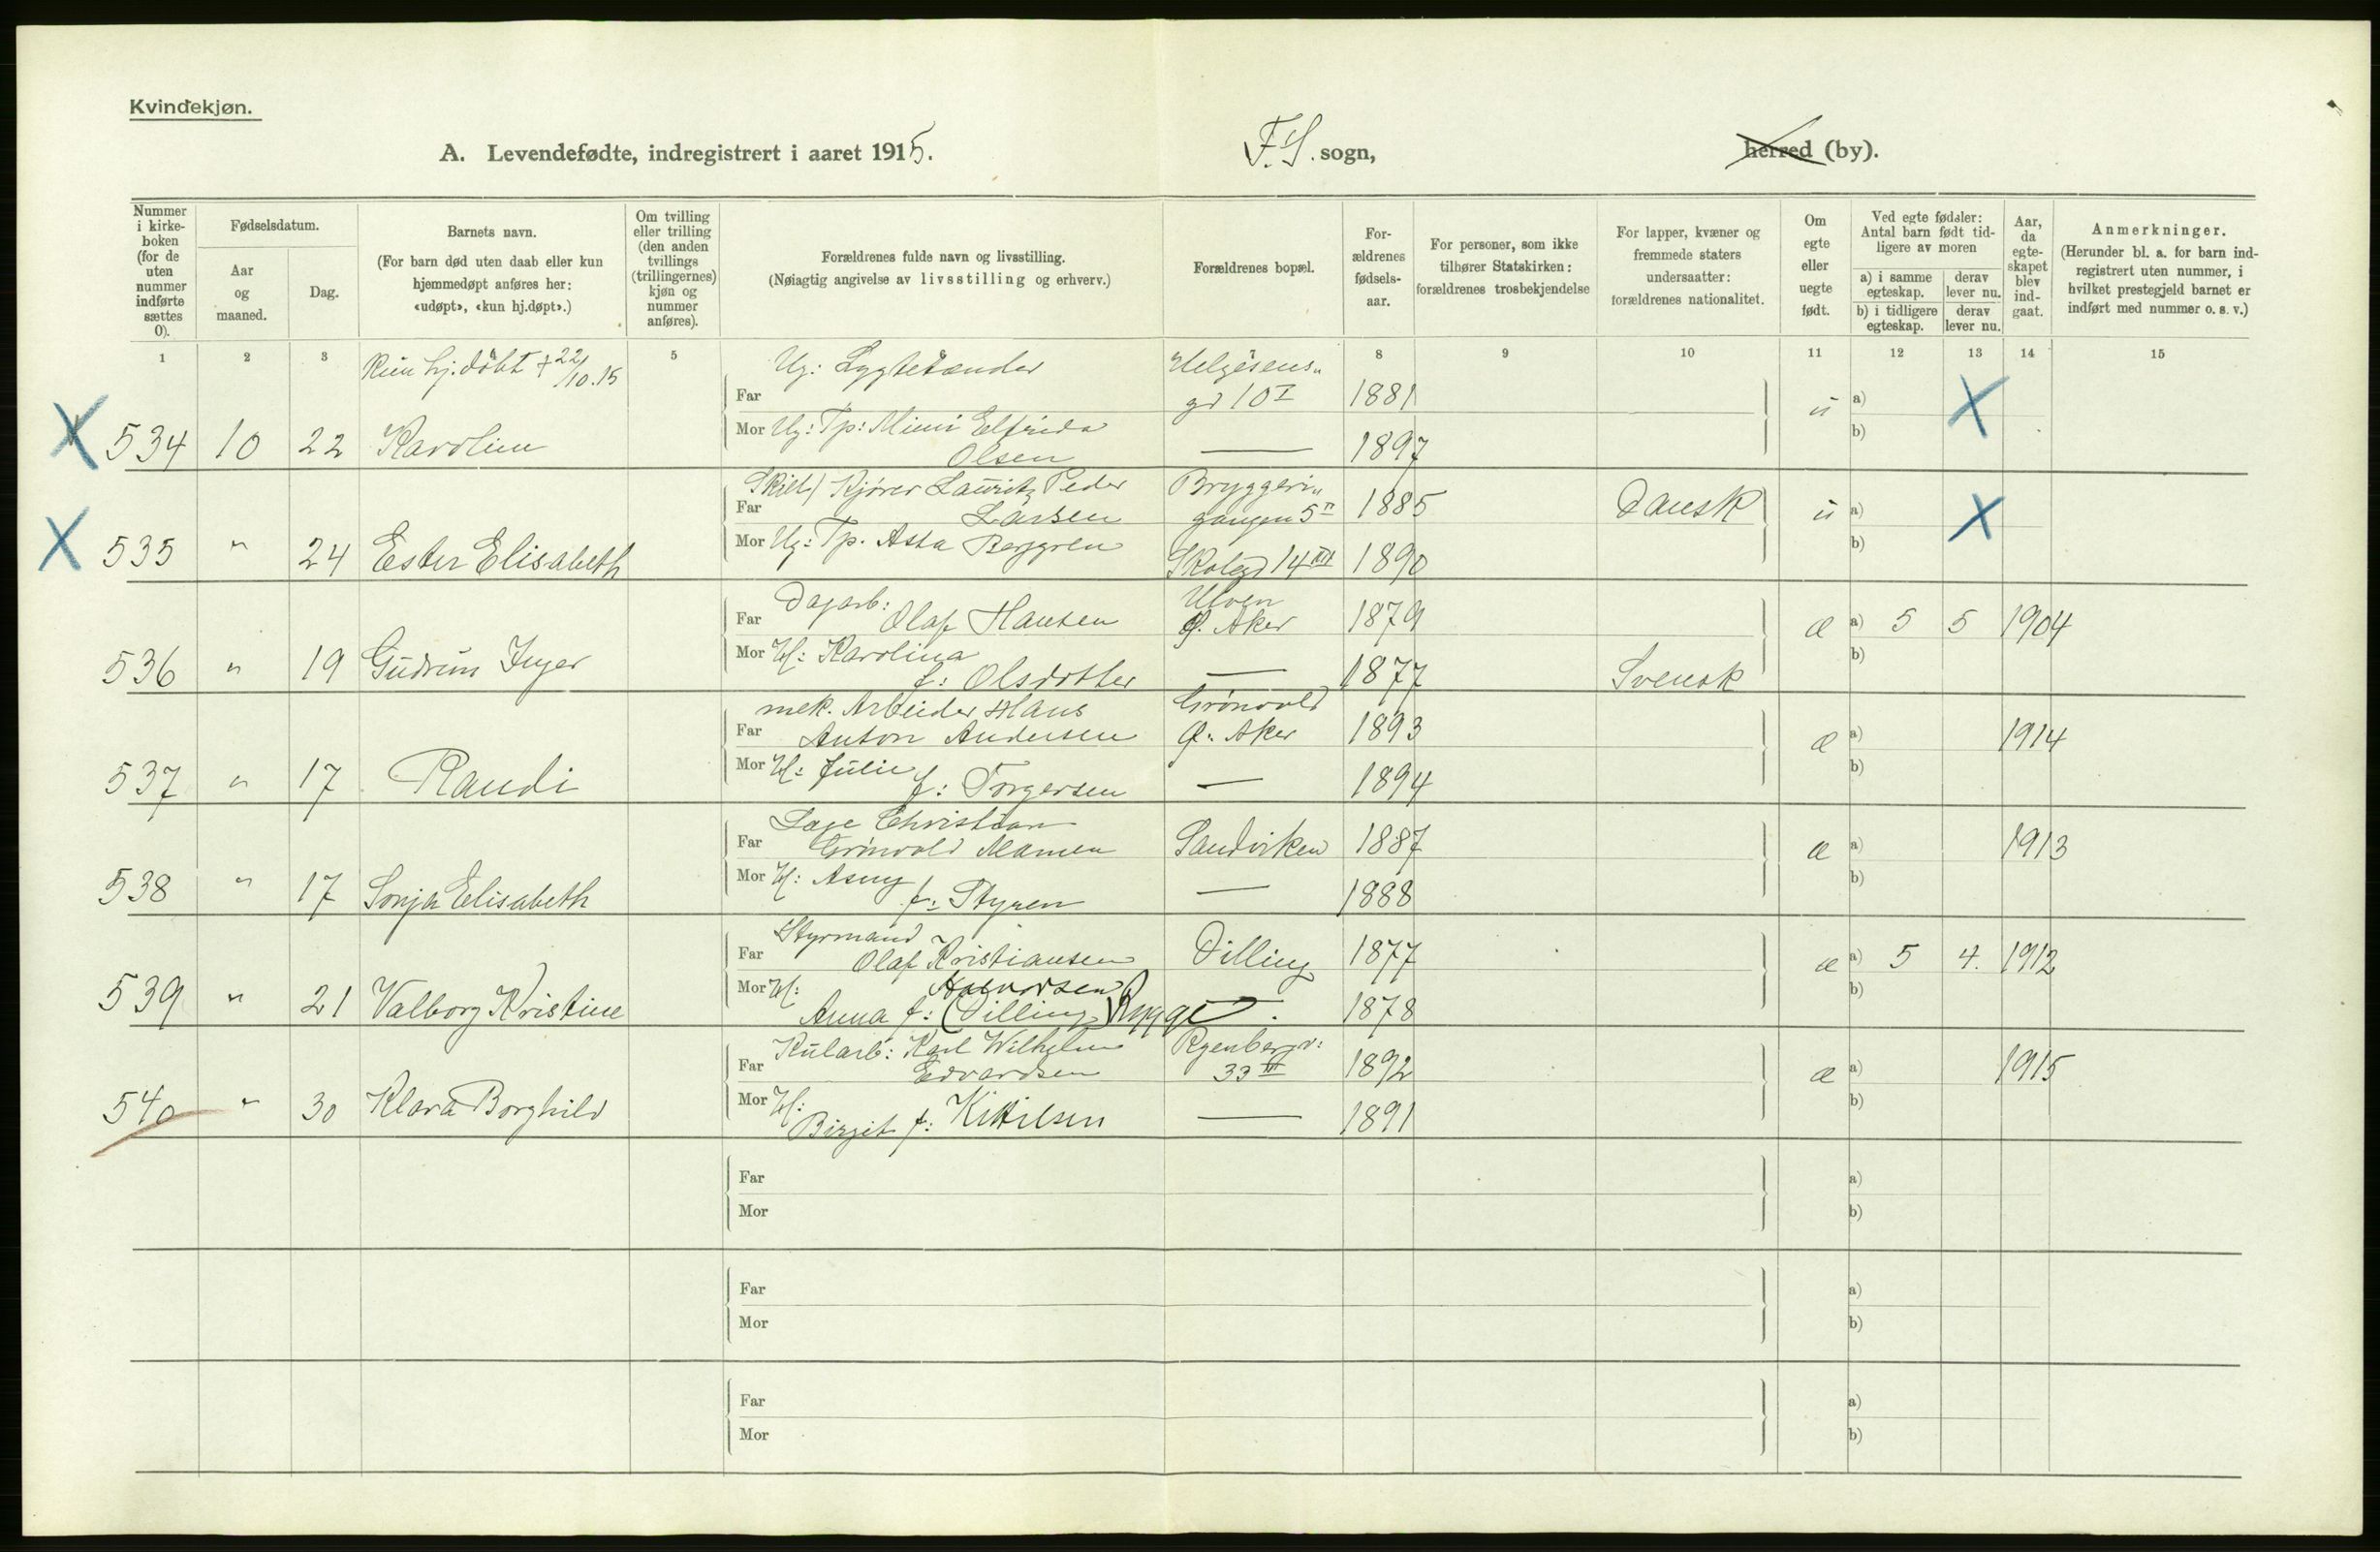 Kvindekjøn.
A. Levendefødte, indregistrert i aaret 1915.
F.S. sogn,
herred (by).
Nummer i kirkeboken (for de uten nummer indførte sættes 0).
Fødselsdatum.
Aar og maaned.
Dag.
Barnets navn.
(For barn død uten daab eller kun hjemmedøpt anføres her: «udøpt», «kun hj.døpt».)
Om tvilling eller trilling (den anden tvillings (trillingernes) kjøn og nummer anføres).
Forældrenes fulde navn og livsstilling.
(Nøiagtig angivelse av livsstilling og erhverv.)
Forældrenes bopæl.
Forældrenes fødselsaar.
For personer, som ikke tilhører Statskirken: forældrenes trosbekjendelse
For lapper, kvæner og fremmede staters undersaatter: forældrenes nationalitet.
Om egte eller uegte født.
Ved egte fødsler: Antal barn født tidligere av moren
a) i samme egteskap.
derav lever nu.
b) i tidligere egteskap.
derav lever nu.
Aar, da egteskapet blev indgaat.
Anmerkninger.
(Herunder bl. a. for barn indregistrert uten nummer, i hvilket prestegjeld barnet er indført med nummer o. s. v.)
1 2 3 5 8 9 10 11 12 13 14 15
Kun hj. döbt + 22/10.15
Ug: Lygtetænder
Helgesens"
Far gd 10 I 1881 ü a)
534 10 22 Karoline Mor Ug: Tp: Mimi Elfrida b)
Olsen — 1897
Skilt/ Kjörer Lauritz Peder Bryggeri"
Far Larsen gangen 5 II 1885 Dansk ü a)
535 " 24 Ester Elisabeth Mor Ug: Tp. Asta Berggren Skolegd 14 III 1890 b)
Dagarb: Ulven
Far Olaf Hansen Ø. Aker 1879 æ a) 5 5 1904
536 " 19 Gudrun Inger Mor H: Karolina b)
f: Olsdotter — 1877 Svensk
mek. Arbeider Hans Grönvold
Far Anton Andersen Ø. Aker 1893 æ a) 1914
537 " 17 Randi Mor H: Julie f: Torgersen — 1894 b)
Christian
Far Grönvold Mamen Sandviken 1887 æ a) 1913
538 " 17 Sonja Elisabeth Mor H: Asny f: Styren — 1888 b)
Styrmand
Far Olaf Kristiansen Dilling 1877 æ a) 5 4. 1912
539 " 21 Valborg Kristine Mor H: Halvorsen b)
Anna f: (Dilling) Rygge 1878
Kularb: Karl Wilhelm Ryenbergv:
Far Edvardsen 33 III 1892 æ a) 1915
540 " 30 Klara Borghild Mor H: b)
Birgit f: Kittilsen — 1891
Far a)
Mor b)
Far a)
Mor b)
Far a)
Mor b)